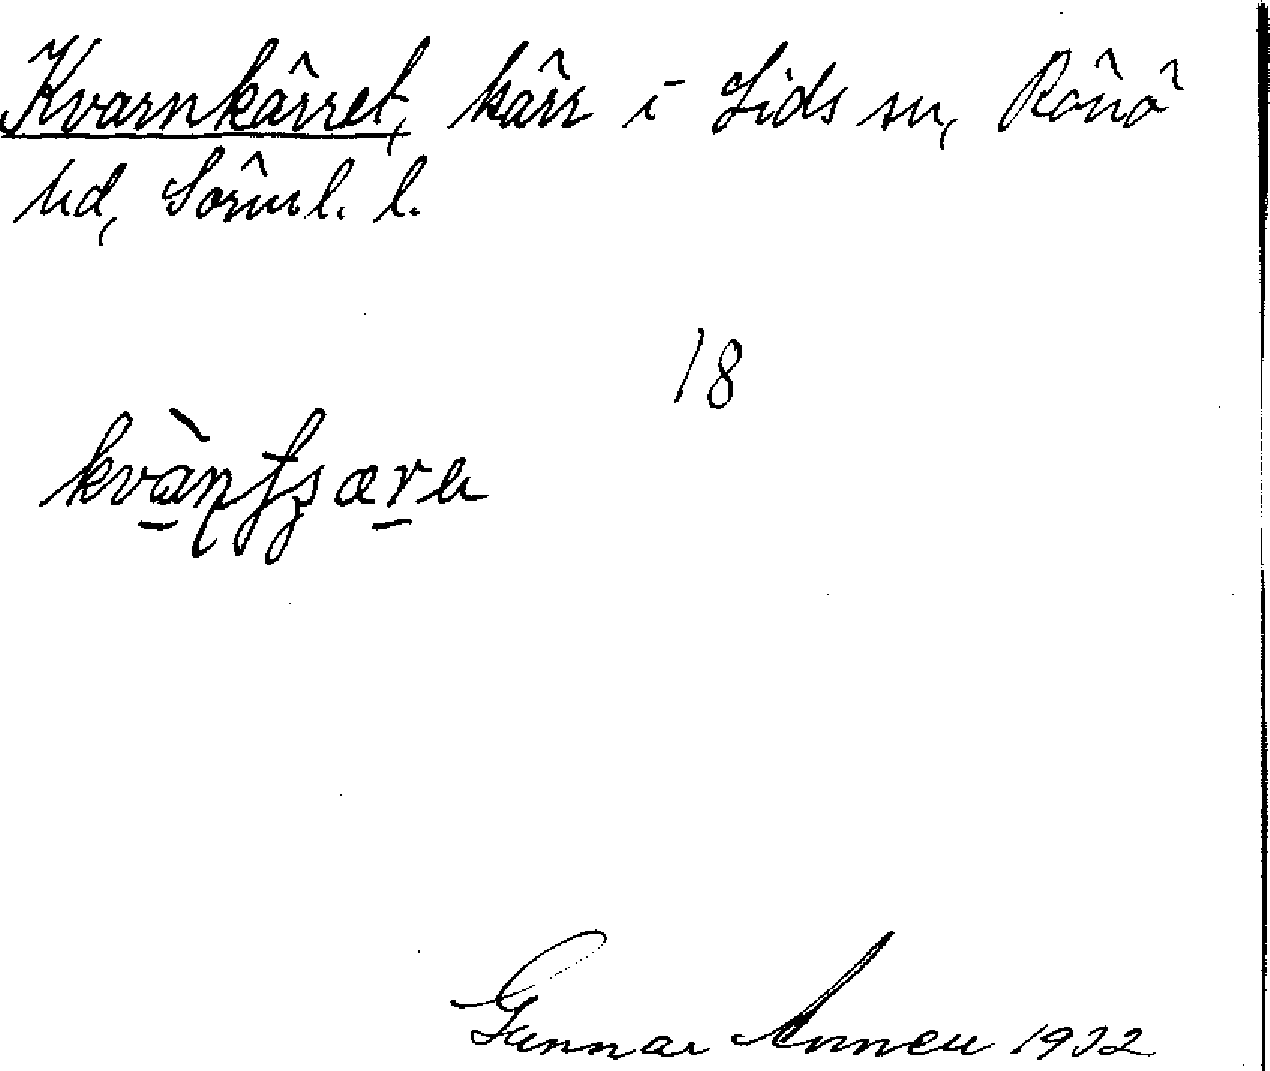 Kvarnkärret, kärr i Lids sn, Rönö
hd, Sörml. l.
18
kvàṇfʂærɐ
Gunnar Annell 1932